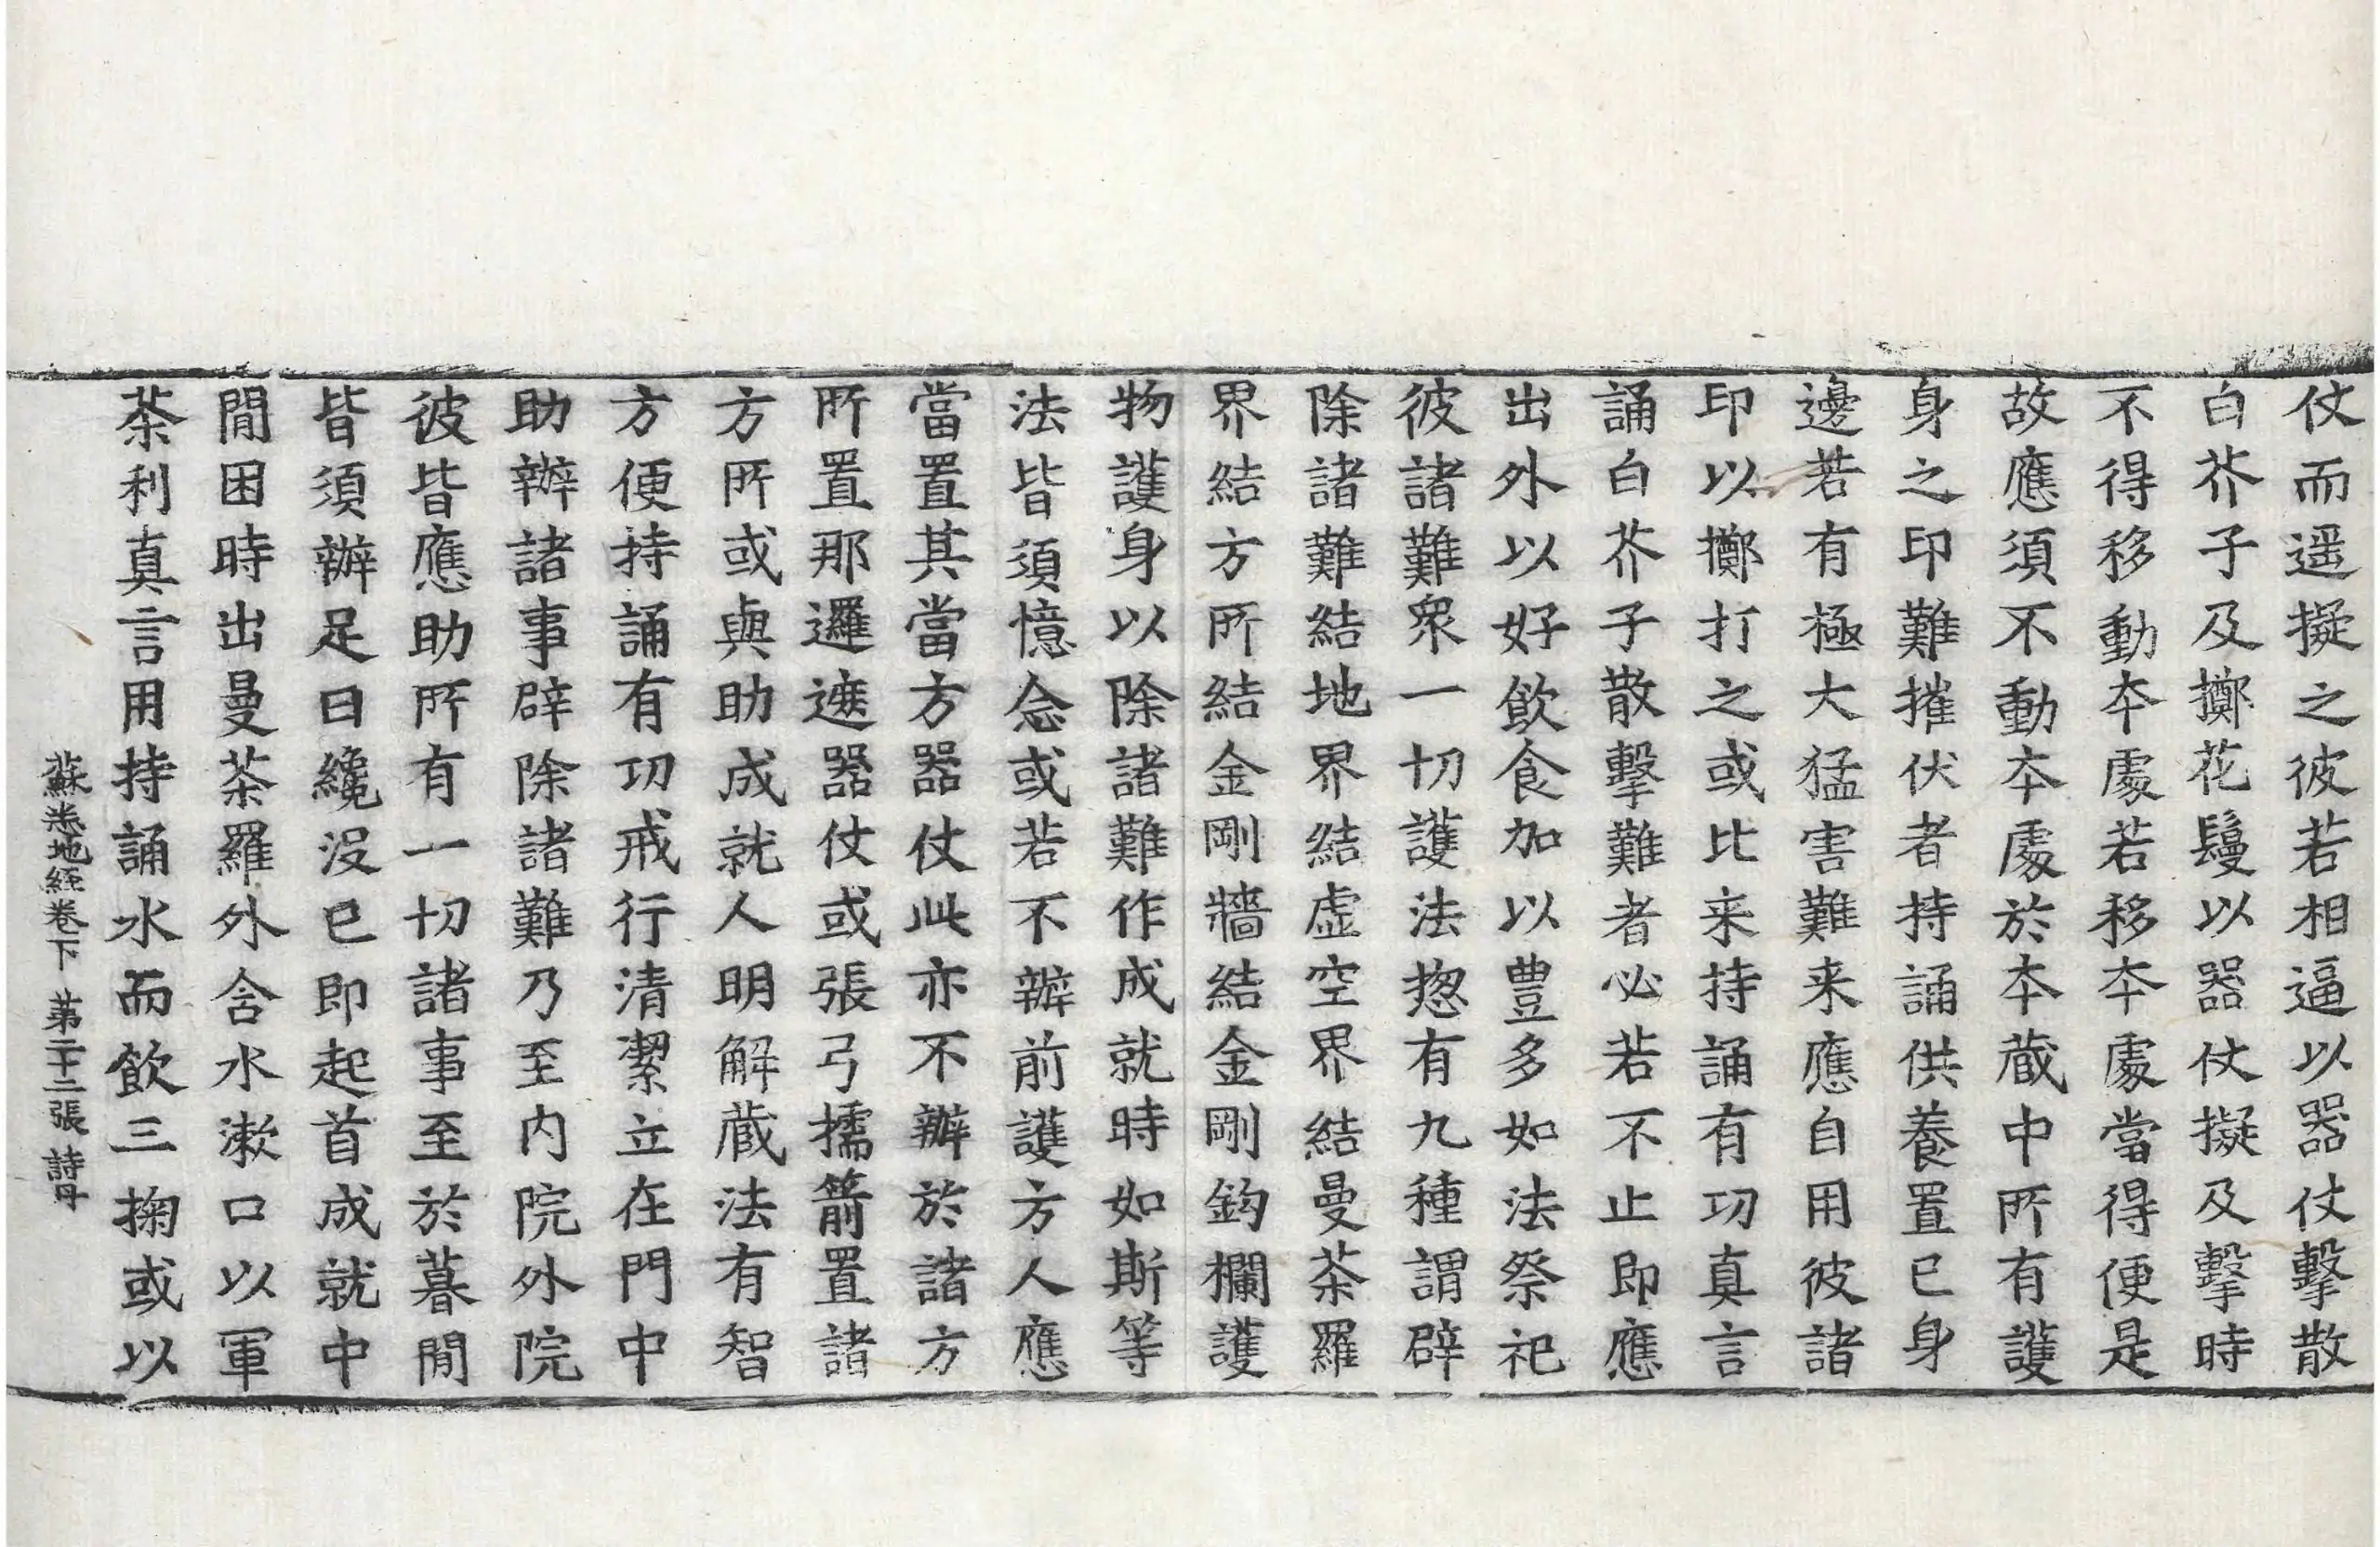 仗而遥擬之彼若相逼以器仗擊散
白芥子及擲花鬘以器仗擬及擊時
不得移動夲處若移夲處當得便是
故應須不動夲處於夲蔵中所有護
身之印難摧伏者持誦供養置已身
邊若有極大猛害難来應自用彼諸
印以擲打之或比来持誦有功真言
誦白芥子散擊難者必若不止即應
出外以好飲食加以豊多如法祭祀
彼諸難衆一切護法揔有九種謂辟
除諸難結地界結虚空界結曼荼羅
界結方所結金剛牆結金剛鈎欄護
物護身以除諸難作成就時如斯等
法皆須憶念或若不辦前護方人應
當置其當方器仗此亦不辦於諸方
所置那邏遮器仗或張弓擩箭置諸
方所或與助成就人明解蔵法有智
方便持誦有功戒行清潔立在門中
助辦諸事辟除諸難乃至内院外院
彼皆應助所有一切諸事至於暮閒
皆須辦足日纔没已即起首成就中
閒困時出曼荼羅外含水漱口以軍
荼利真言用持誦水而飲三掬或以
蘇悉地経卷下 苐二十二張 詩